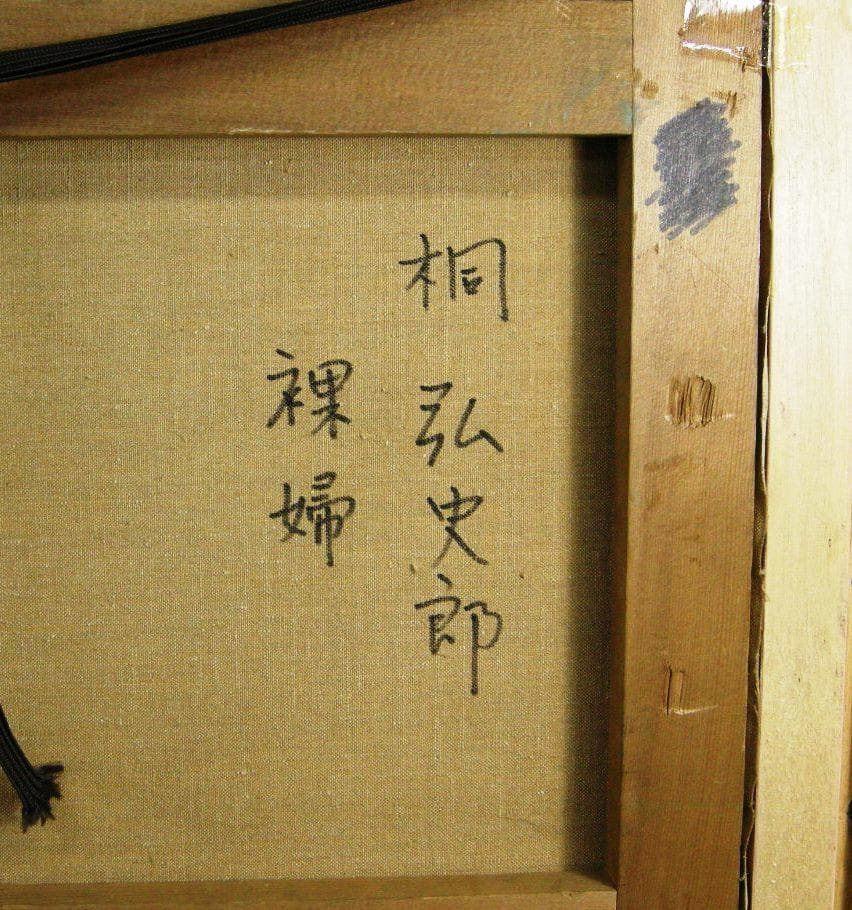 桐弘史郎
裸婦